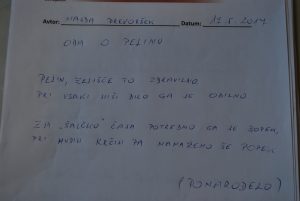 Avtor: MAJDA PREVORŠEK Datum: 17.5.2017
ODA O PELINU
PELIN, ZELIŠČE TO ZDRAVILNO
PRI VSAKI HIŠI BILO GA JE OBILNO
ZA „ŠALČKO“ ČAJA POTREBNO GA JE ŠOPEK,
PRI HUDIH KRČIH PA NAMAŽEMO ŠE POPEK
(PONARODELO)